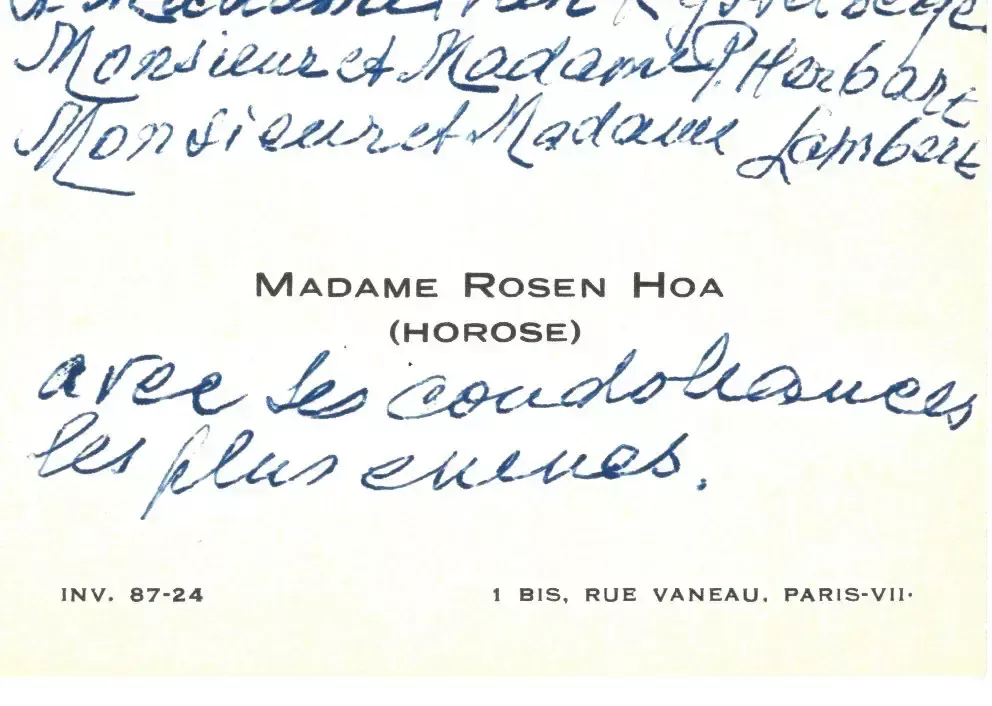 et Madame Van Rysselberghe
Monsieur et Madame P. Herbart
Monsieur et Madame Lambert
MADAME ROSEN HOA
(HOROSE)
avec ses condoléances
les plus émues.
INV. 87-24
1 BIS, RUE VANEAU. PARIS-VII·